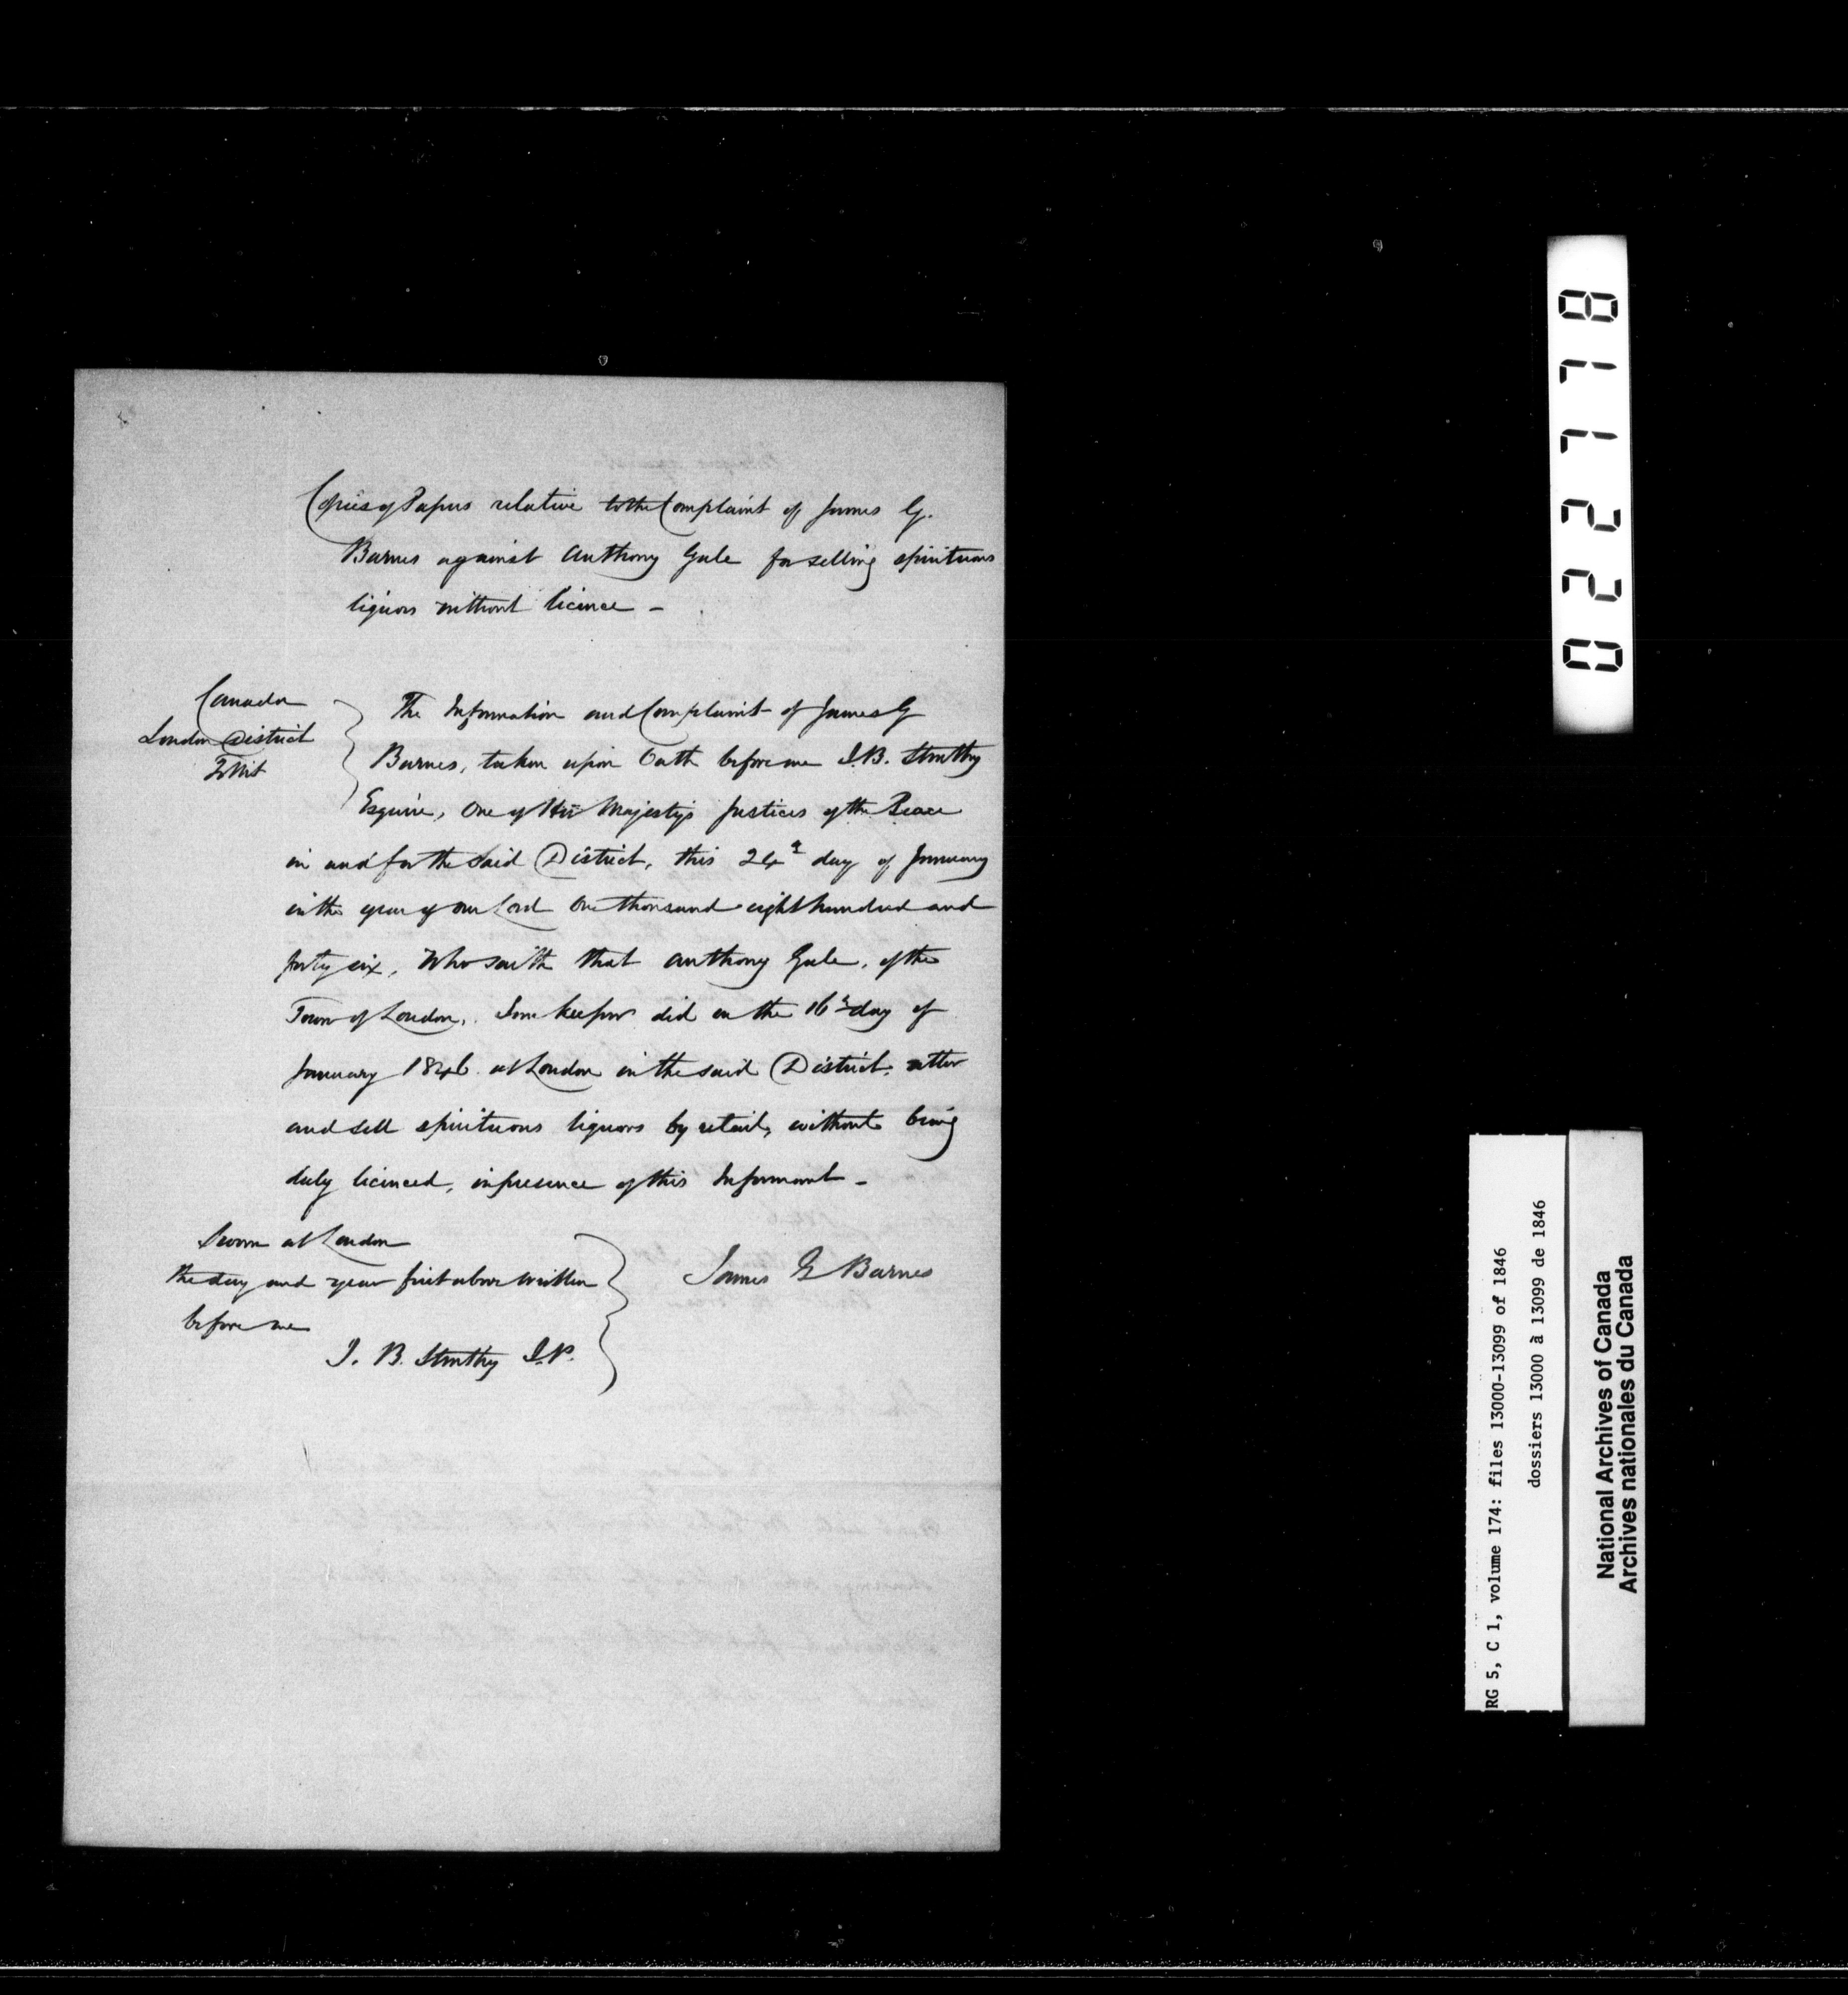 Copies of Papers relative to the Complaint of James G.
Barnes against Anthony Gale for selling spirituous
liquors without licence -
Canada
London District
To Wit
The Information and Complaint of James G
Barnes, taken upon Oath before me J.B. Strathy
Esquire, One of Her Majesty's Justices of the Peace
in and for the said District, this 24th day of January
in the year of our Lord One thousand eight hundred and
forty six, Who saith that Anthony Gale, of the
Town of London, Inn keeper did on the 16th day of
January 1846 at London in the said District, utter
and sell spirituous liquors by retail, without being
duly licenced, in presence of this Informant -
Sworn at London
the day and year first above written
before me
J. B. Strathy J.P.
James G Barnes
022778
RG 5, C 1, volume 174: files 13000-13099 of 1846
dossiers 13000 à 13099 de 1846
National Archives of Canada
Archives nationales du Canada